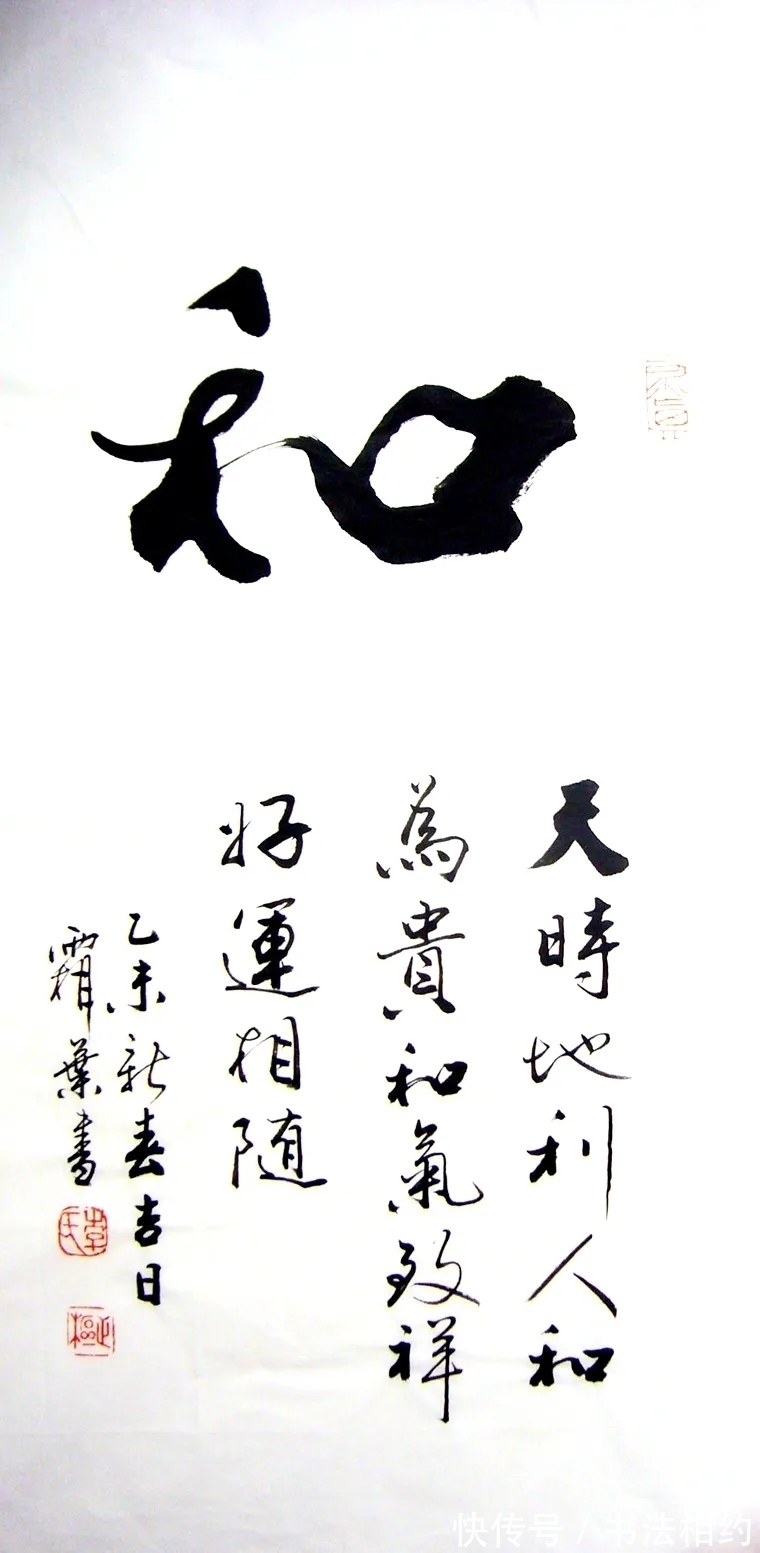 和
天時地利人和
為貴和氣致祥
好運相随
乙未新春吉日
霜葉書
快传号/书法相约